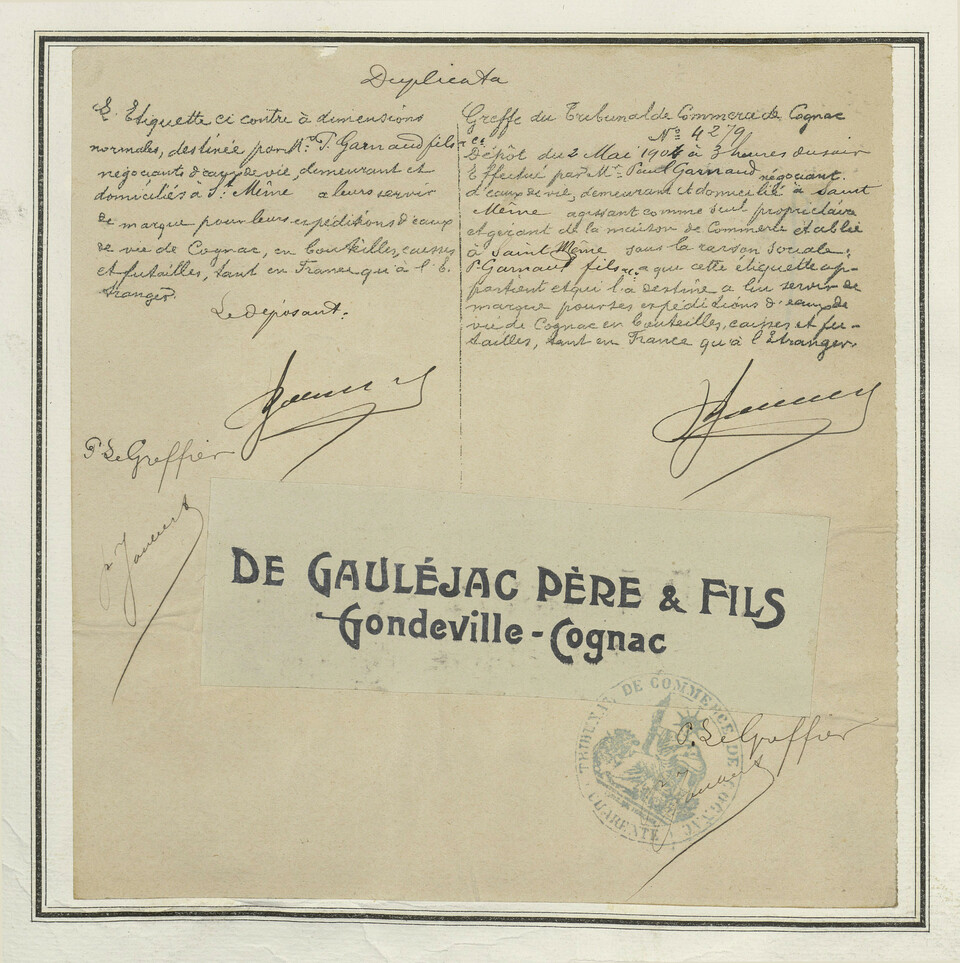 Duplicata
Etiquette ci contre à dimensions
normales, destinée par Mr. P. Garnaud fils & Cie
négociants d'eaux de vie, demeurant et
domiciliés à St. Même a leurs servir
de marque pour leurs expéditions d'eaux
de vie de Cognac, en bouteilles, caisses
et futailles, tant en France qu'à l'é-
tranger.
Le déposant.
P. Le Greffier
Greffe du Tribunal de Commerce de Cognac
No 4279
Dépôt du 2 Mai 190 à 3 heures du soir
Effectué par Mr. Paul Garnaud négociant.
d'eaux de vie, demeurant et domicilié à Saint
Même agissant comme seul propriétaire
et gérant de la maison de Commerce établie
à Saint Même sous la raison sociale:
P. Garnaud fils & Cie a que cette étiquette ap-
partient et qui l'a destiné a lui servir de
marque pour ses expéditions d'eaux de
vie de Cognac en bouteilles, caisses et fu-
tailles, tant en France qu'à l'étranger.
DE GAULÉJAC PÈRE & FILS
Gondeville - Cognac
TRIBUNAL DE COMMERCE DE COGNAC
CHARENTE
P. Le Greffier